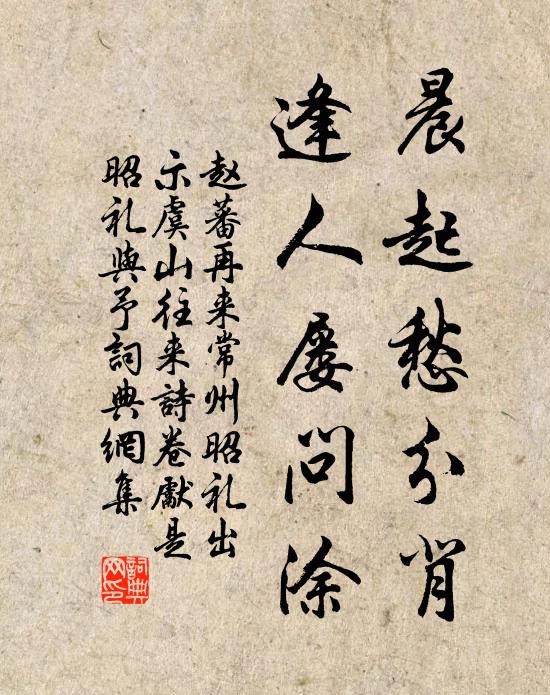 晨起愁分背
逢人屡问涂
赵蕃再来常州昭礼出
示虞山往来詩卷獻是
昭礼與予詞典網集
詞典网印